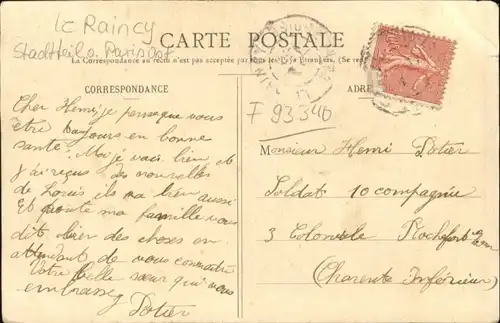 Le Raincy
Stadtteil o. Paris Ost
CARTE POSTALE
La Correspondance au recto n'est pas acceptée par tous les Pays Étrangers. (Se
CORRESPONDANCE
ADRE
F 93340
Cher Henri, je pense que vous
être toujours en bonne
santé. Moi je vais bien et
j'ai reçus des nouvelles
de Louis ils va bien aussi
Et toute ma famille vous
dit bien des choses en
attendant de vous connaître
Votre belle sœur qui vous
embrasse
Potier
Monsieur Henri Potier
Soldat 10 compagnie
3 Coloniale Rochefort
(Charente Inférieur)